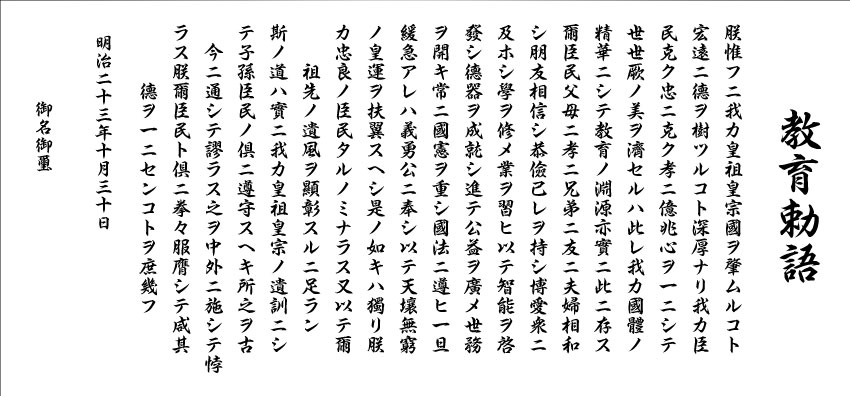 教育勅語
朕惟フニ我カ皇祖皇宗國ヲ肇ムルコト
宏遠ニ德ヲ樹ツルコト深厚ナリ我カ臣
民克ク忠ニ克ク孝ニ億兆心ヲ一ニシテ
世世厥ノ美ヲ濟セルハ此レ我カ國體ノ
精華ニシテ教育ノ淵源亦實ニ此ニ存ス
爾臣民父母ニ孝ニ兄弟ニ友ニ夫婦相和
シ朋友相信シ恭儉己レヲ持シ博愛衆ニ
及ホシ學ヲ修メ業ヲ習ヒ以テ智能ヲ啓
發シ德器ヲ成就シ進テ公益ヲ廣メ世務
ヲ開キ常ニ國憲ヲ重シ國法ニ遵ヒ一旦
緩急アレハ義勇公ニ奉シ以テ天壤無窮
ノ皇運ヲ扶翼スヘシ是ノ如キハ獨リ朕
カ忠良ノ臣民タルノミナラス又以テ爾
祖先ノ遺風ヲ顯彰スルニ足ラン
斯ノ道ハ實ニ我カ皇祖皇宗ノ遺訓ニシ
テ子孫臣民ノ俱ニ遵守スヘキ所之ヲ古
今ニ通シテ謬ラス之ヲ中外ニ施シテ悖
ラス朕爾臣民ト俱ニ拳々服膺シテ咸其
德ヲ一ニセンコトヲ庶幾フ
明治二十三年十月三十日
御名御璽